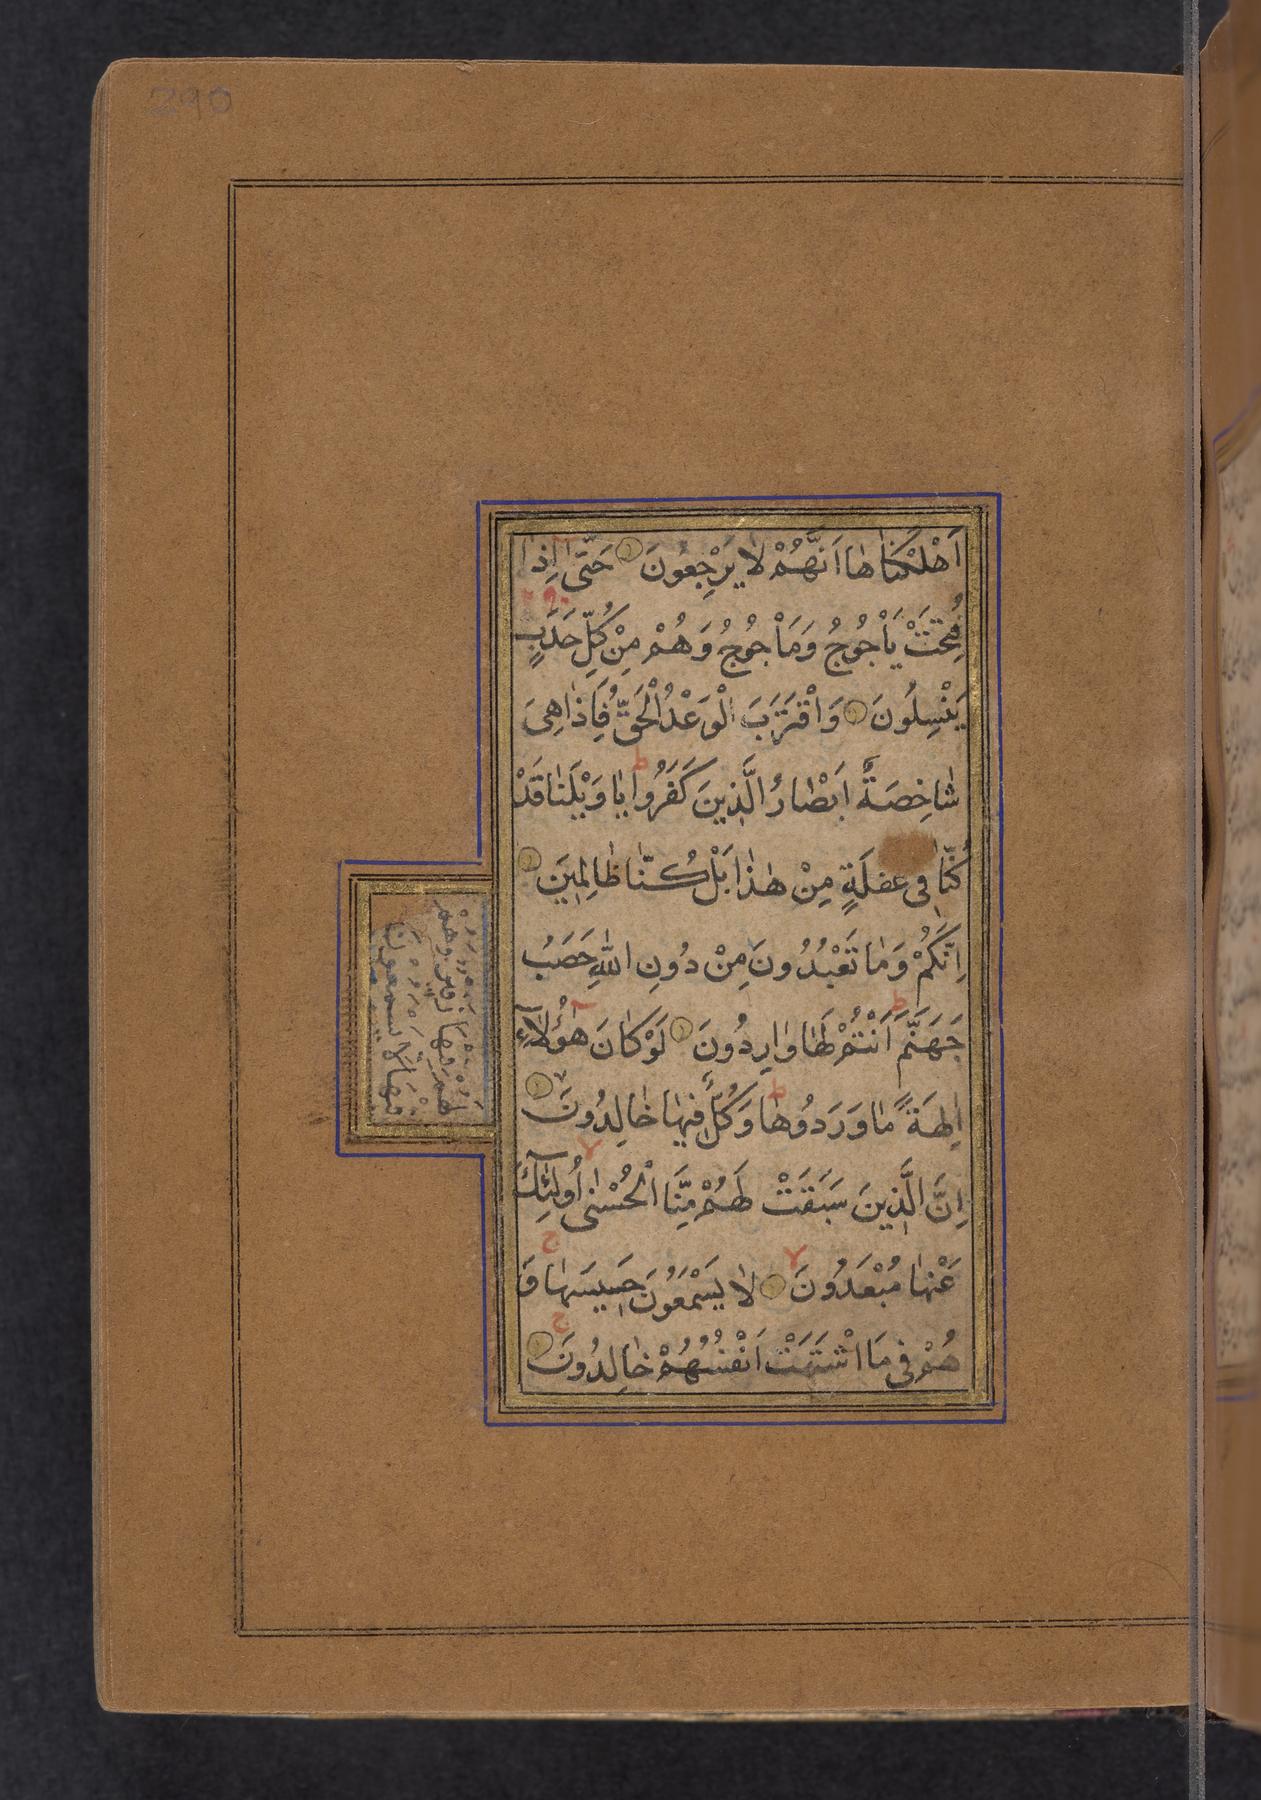 290
اَهْلَكْنٰاهٰا اَنَّهُمْ لٰا يَرْجِعُونَ حَتّىٰ اِذٰا
فُتِحَتْ يَأْجُوجُ وَمَأْجُوجُ وَهُمْ مِنْ كُلِّ حَدَبٍ
يَنْسِلُونَ وَاقْتَرَبَ الْوَعْدُ الْحَقُّ فَاِذٰا هِىَ
شٰاخِصَةٌ اَبْصٰارُ الَّذِينَ كَفَرُوا يٰا وَيْلَنٰا قَدْ
كُنّٰا فِى غفلَةٍ مِنْ هٰذٰا بَلْ كُنّٰا ظٰالِمِينَ
اِنَّكُمْ وَمٰا تَعْبُدُونَ مِنْ دُونِ اللّٰهِ حَصَبُ
جَهَنَّمَ اَنْتُمْ لَهٰا وٰارِدُونَ لَوْ كٰانَ هٰؤُلٰاۤءِ
اٰلِهَةً مٰا وَرَدُوهٰا وَكُلٌّ فِيهٰا خٰالِدُونَ
اِنَّ الَّذِينَ سَبَقَتْ لَهُمْ مِنَّا الْحُسْنٰى اُولٰۤئِكَ
عَنْهٰا مُبْعَدُونَ لٰا يَسْمَعُونَ حَسِيسَهٰا وَ
هُمْ فِى مَا اشْتَهَتْ اَنْفُسُهُمْ خٰالِدُونَ
لَهُمْ فِيهَا زَفِيرٌ وَهُمْ
فِيهَا لَا يَسْمَعُونَ